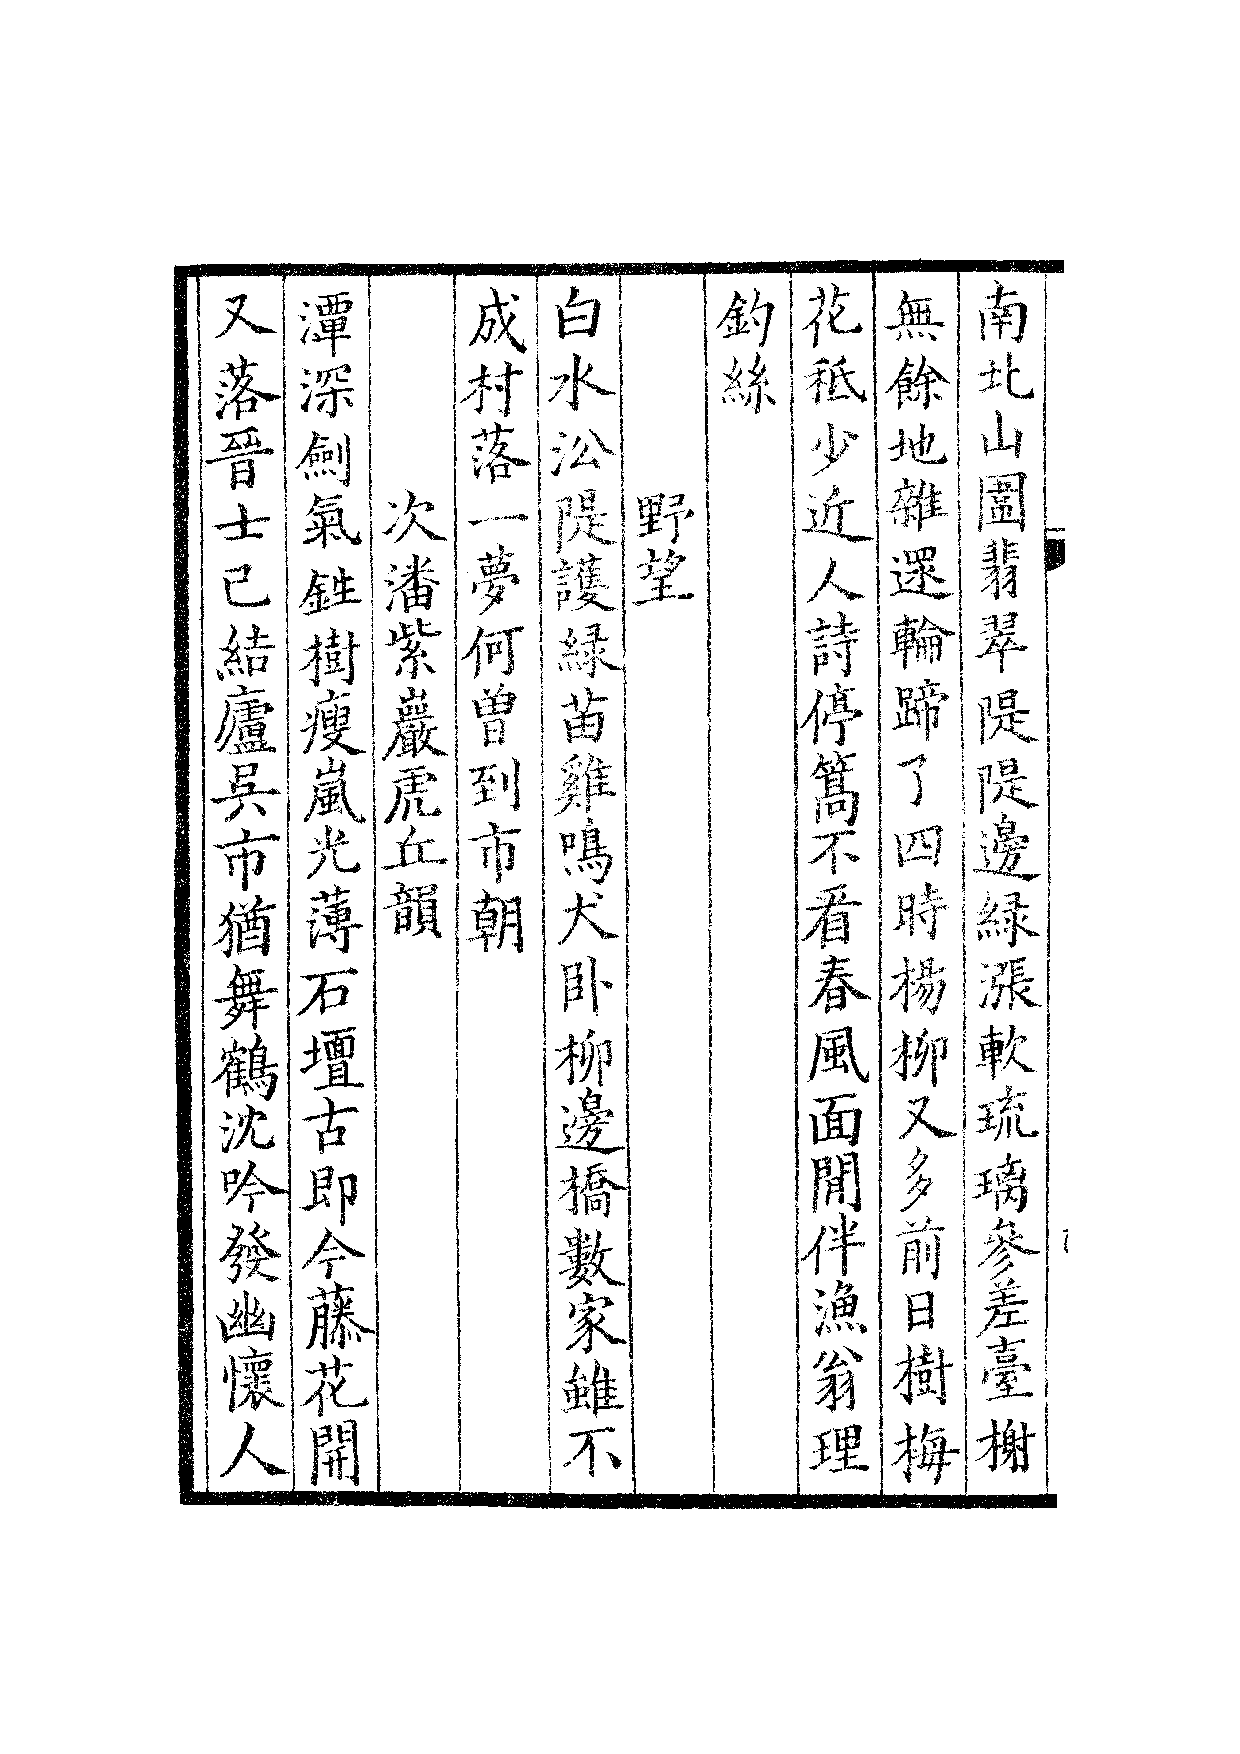 南北山圖翡翠隄隄邊緑漲軟琉璃參差臺榭
無餘地雜還輪蹄了四時楊柳又多前日樹梅
花秪少近人詩停篙不看春風面閒伴漁翁理
釣絲
野望
白水沿隄護緑苗雞鳴犬卧柳邊橋數家雖不
成村落一夢何曽到市朝
次潘紫巖虎丘韻
潭深劍氣鉎樹瘦嵐光薄石壇古即今藤花開
又落晉士已結廬呉市猶舞鶴沈吟發幽懷人